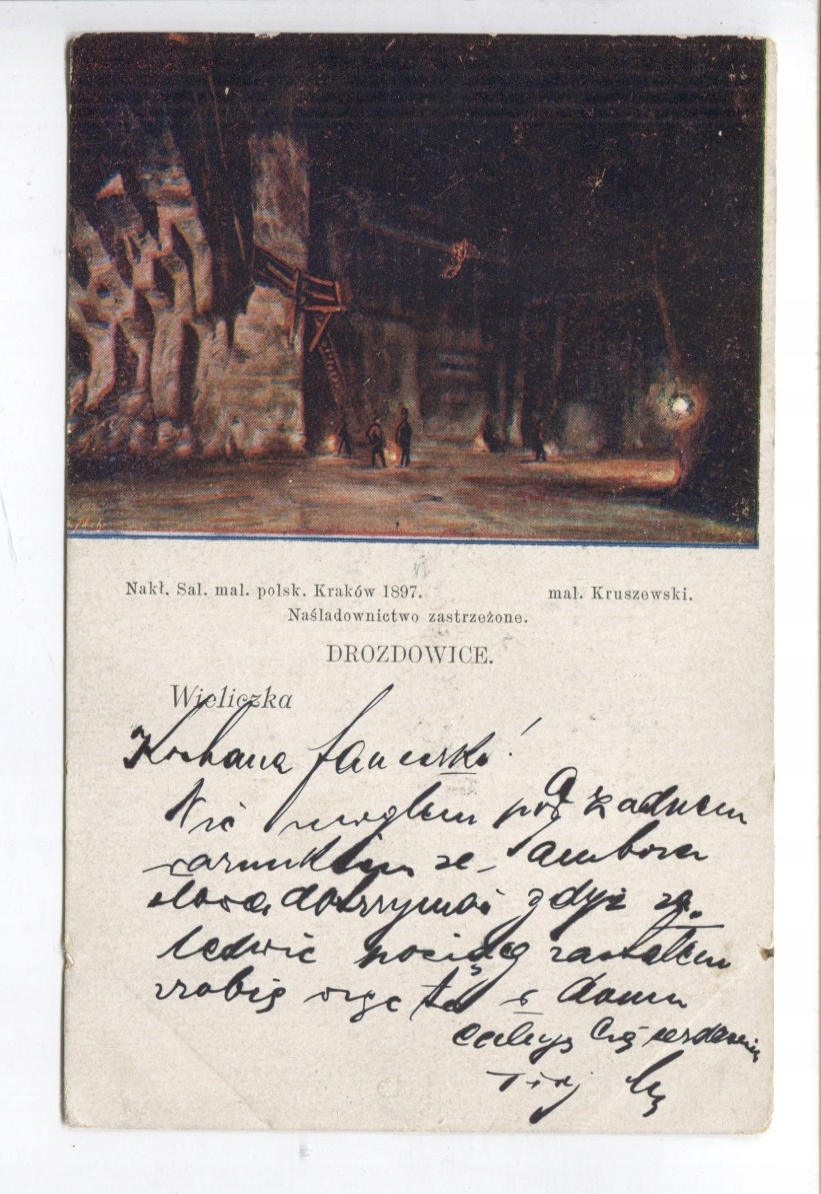 Nakł. Sal. mal. polsk. Kraków 1897. mal. Kruszewski.
Naśladownictwo zastrzeżone.
DROZDOWICE.
Wieliczka
Kochana
Nie mogłem pod żadnem
warunkiem ze
słowa dotrzymać gdyż za
ledwie pociąg zastałem
zrobię to z domu
całuję Cię serdecznie
Twój